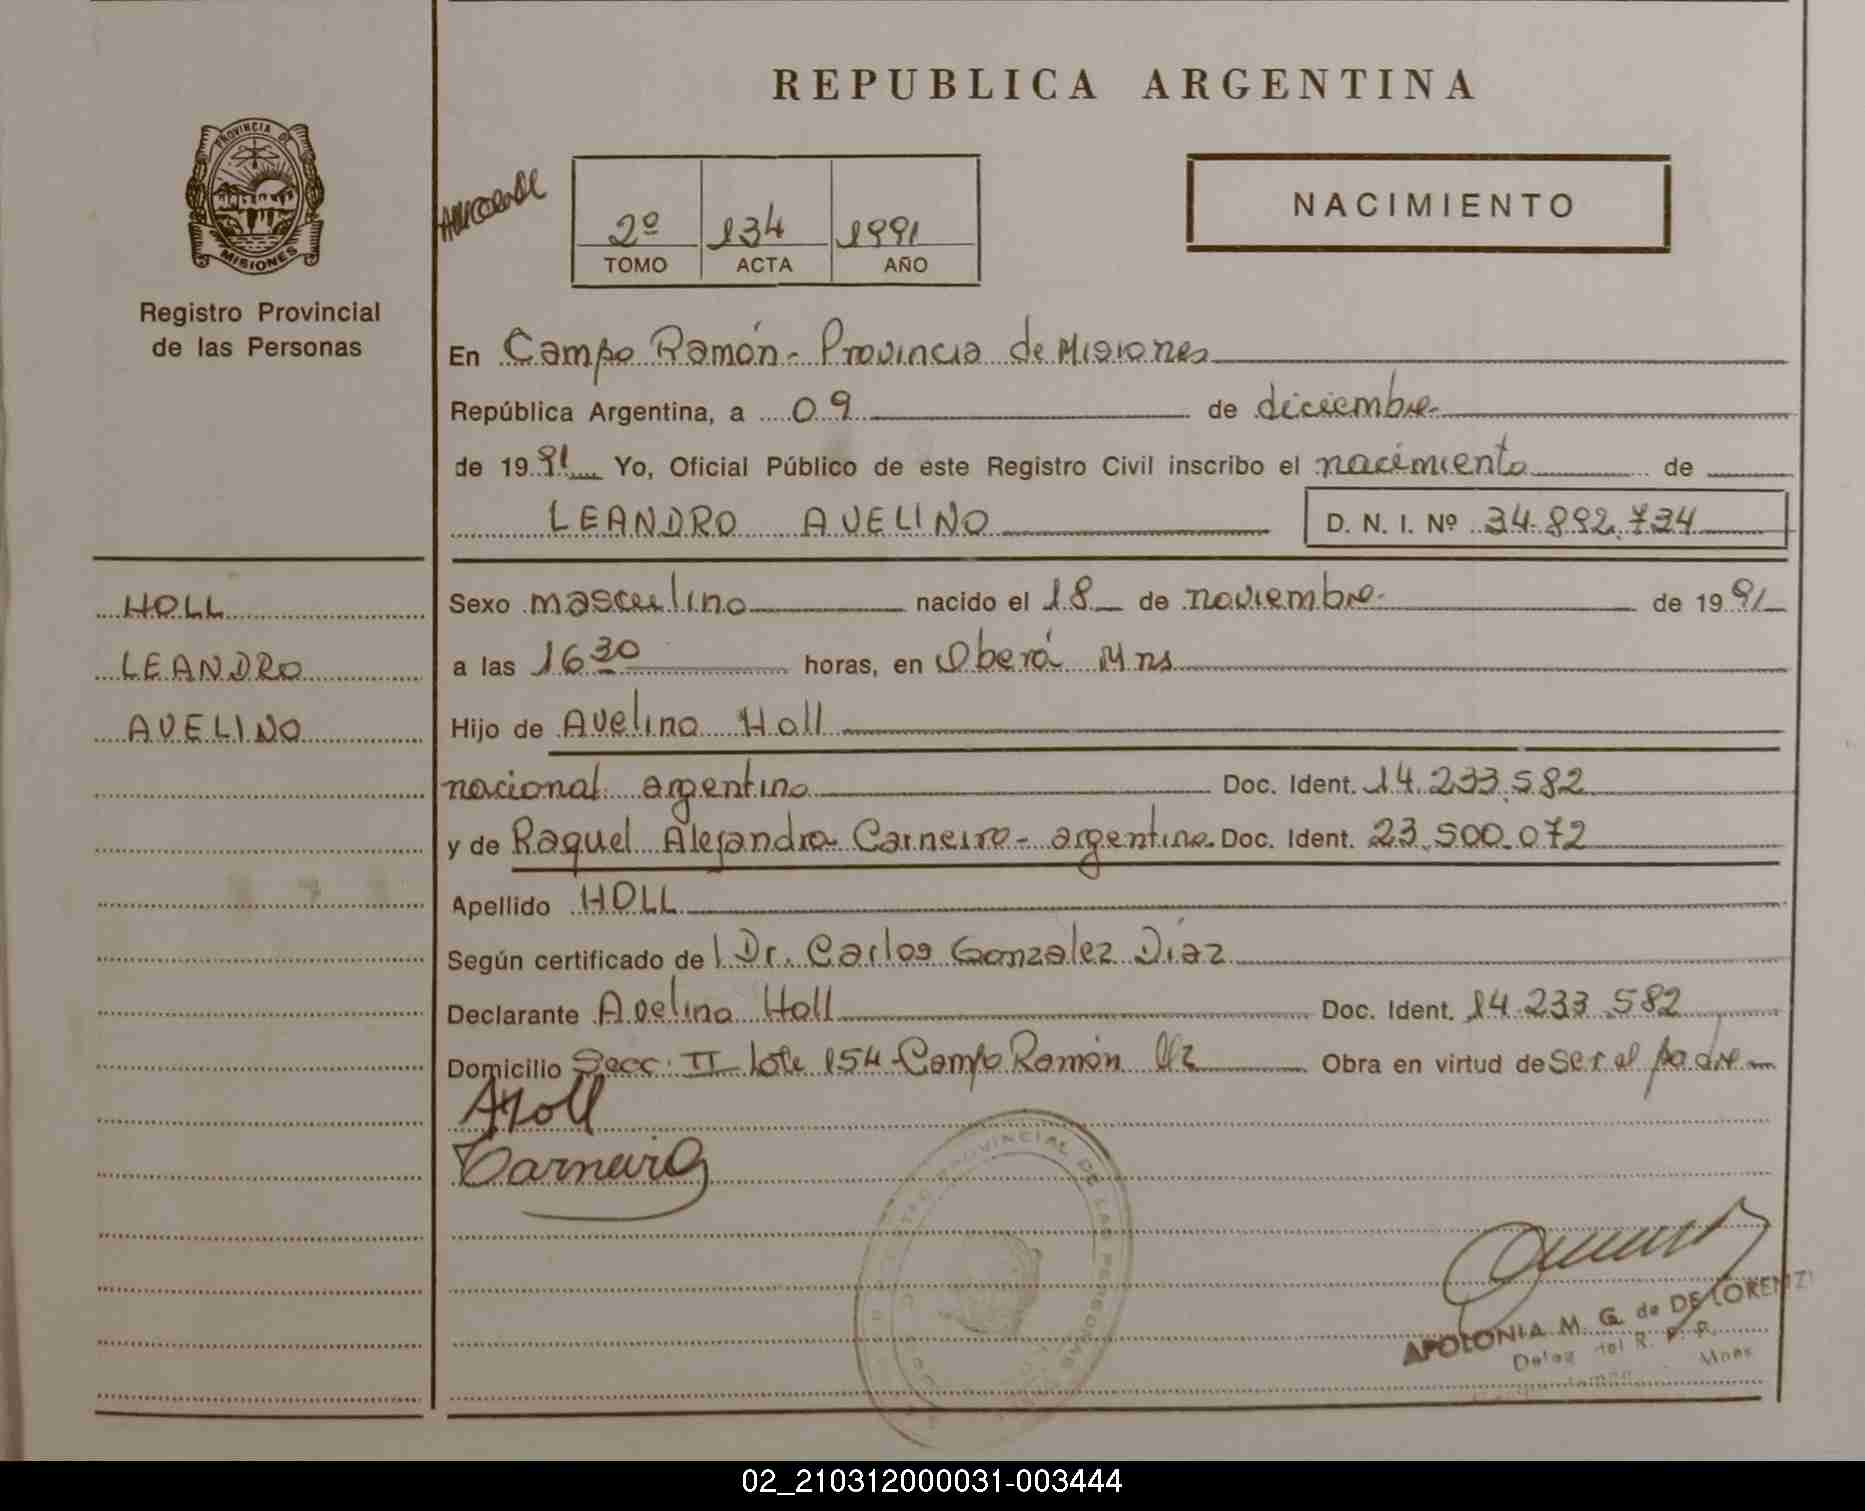 REPUBLICA ARGENTINA
PROVINCIA DE
MISIONES
Registro Provincial
de las Personas
2º 134 1991
TOMO ACTA AÑO
NACIMIENTO
En Campo Ramón - Provincia de Misiones
República Argentina, a 09 de diciembre
de 1991 Yo, Oficial Público de este Registro Civil inscribo el nacimiento de
LEANDRO AVELINO D. N. I. Nº 34.892.734
HOLL
LEANDRO
AVELINO
Sexo masculino nacido el 18 de noviembre de 1991
a las 16 30 horas, en Oberá Mns
Hijo de Avelino Holl
nacional argentino Doc. Ident. 14.233.582
y de Raquel Alejandra Carneiro - argentina Doc. Ident. 23.500.072
Apellido HOLL
Según certificado del Dr. Carlos Gonzalez Díaz
Declarante Avelino Holl Doc. Ident. 14.233.582
Domicilio Secc. II lote 154 - Campo Ramón Obra en virtud de ser el padre
AHoll
Carneiro
PROVINCIAL DE LAS PERSONAS
APOLONIA M. G. de DE LORENZI
Deleg del R. P. P.
Mnes
02_210312000031-003444